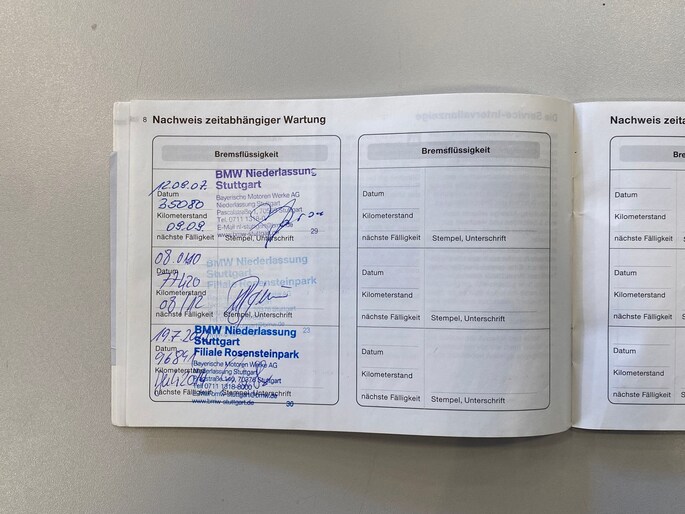 8 Nachweis zeitabhängiger Wartung
Bremsflüssigkeit
12.09.07.
Datum
35080
Kilometerstand
09.09
nächste Fälligkeit
BMW Niederlassung
Stuttgart
Bayerische Motoren Werke AG
Niederlassung Stuttgart
Tel. 0711
www.bmw-stuttgart.de
Stempel, Unterschrift
29
Datum
77420
Kilometerstand
08/12
nächste Fälligkeit
BMW Niederlassung
Stuttgart
Filiale Rosensteinpark
Stempel, Unterschrift
23
19.7.
Datum
Kilometerstand
nächste Fälligkeit
BMW Niederlassung
Stuttgart
Filiale Rosensteinpark
Bayerische Motoren Werke AG
Niederlassung Stuttgart
70376 Stuttgart
Tel 0711 1318-8000
www.bmw-stuttgart.de
Stempel, Unterschrift
30
Bremsflüssigkeit
Datum
Kilometerstand
nächste Fälligkeit Stempel, Unterschrift
Datum
Kilometerstand
nächste Fälligkeit Stempel, Unterschrift
Datum
Kilometerstand
nächste Fälligkeit Stempel, Unterschrift
Nachweis
Datum
Kilometerstand
nächste Fälligkeit
Datum
Kilometerstand
nächste Fälligkeit
Datum
Kilometerstand
nächste Fälligkeit